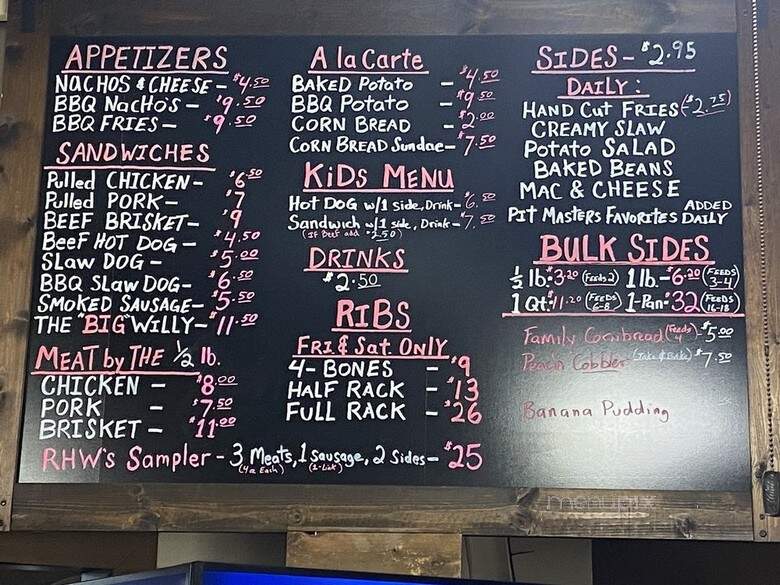 APPETIZERS
NACHOS & CHEESE - $4.50
BBQ NACHO'S - $9.50
BBQ FRIES - $9.50
SANDWICHES
Pulled CHICKEN - $6.50
Pulled PORK - $7
BEEF BRISKET - $9
BEEF HOT DOG - $4.50
SLAW DOG - $5.00
BBQ SLAW DOG - $6.50
SMOKED SAUSAGE - $5.50
THE "BIG" WILLY - $11.50
MEAT by THE 1/2 lb.
CHICKEN - $8.00
PORK - $7.50
BRISKET - $11.00
RHW's Sampler - 3 Meats, 1 Sausage, 2 Sides - $25
(4oz Each) (1-Link)
A la Carte
BAKED Potato - $4.50
BBQ Potato - $9.50
CORN BREAD - $2.00
CORN BREAD Sundae - $7.50
KiDs MENU
Hot DOG w/1 Side, Drink - $6.50
Sandwich w/1 side, Drink - $7.50
(If Beef add $2.50)
DRINKS
$2.50
RIBS
FRI & Sat. ONLY
4- BONES - $9
HALF RACK - $13
FULL RACK - $26
SIDES - $2.95
DAILY:
HAND Cut FRIES ($2.75)
CREAMY SLAW
Potato SALAD
BAKED BEANS
MAC & CHEESE
Pit Masters Favorites ADDED DAILY
BULK SIDES
1/2 lb. $3.20 (Feeds 2) 1 lb. - $6.20 (FEEDS 3-4)
1 Qt. $11.20 (FEEDS 6-8) 1-Pan $32 (FEEDS 16-18)
Family Cornbread (Feeds 4) - $5.00
Peach Cobbler (Take & Bake) $7.50
Banana Pudding
menupix